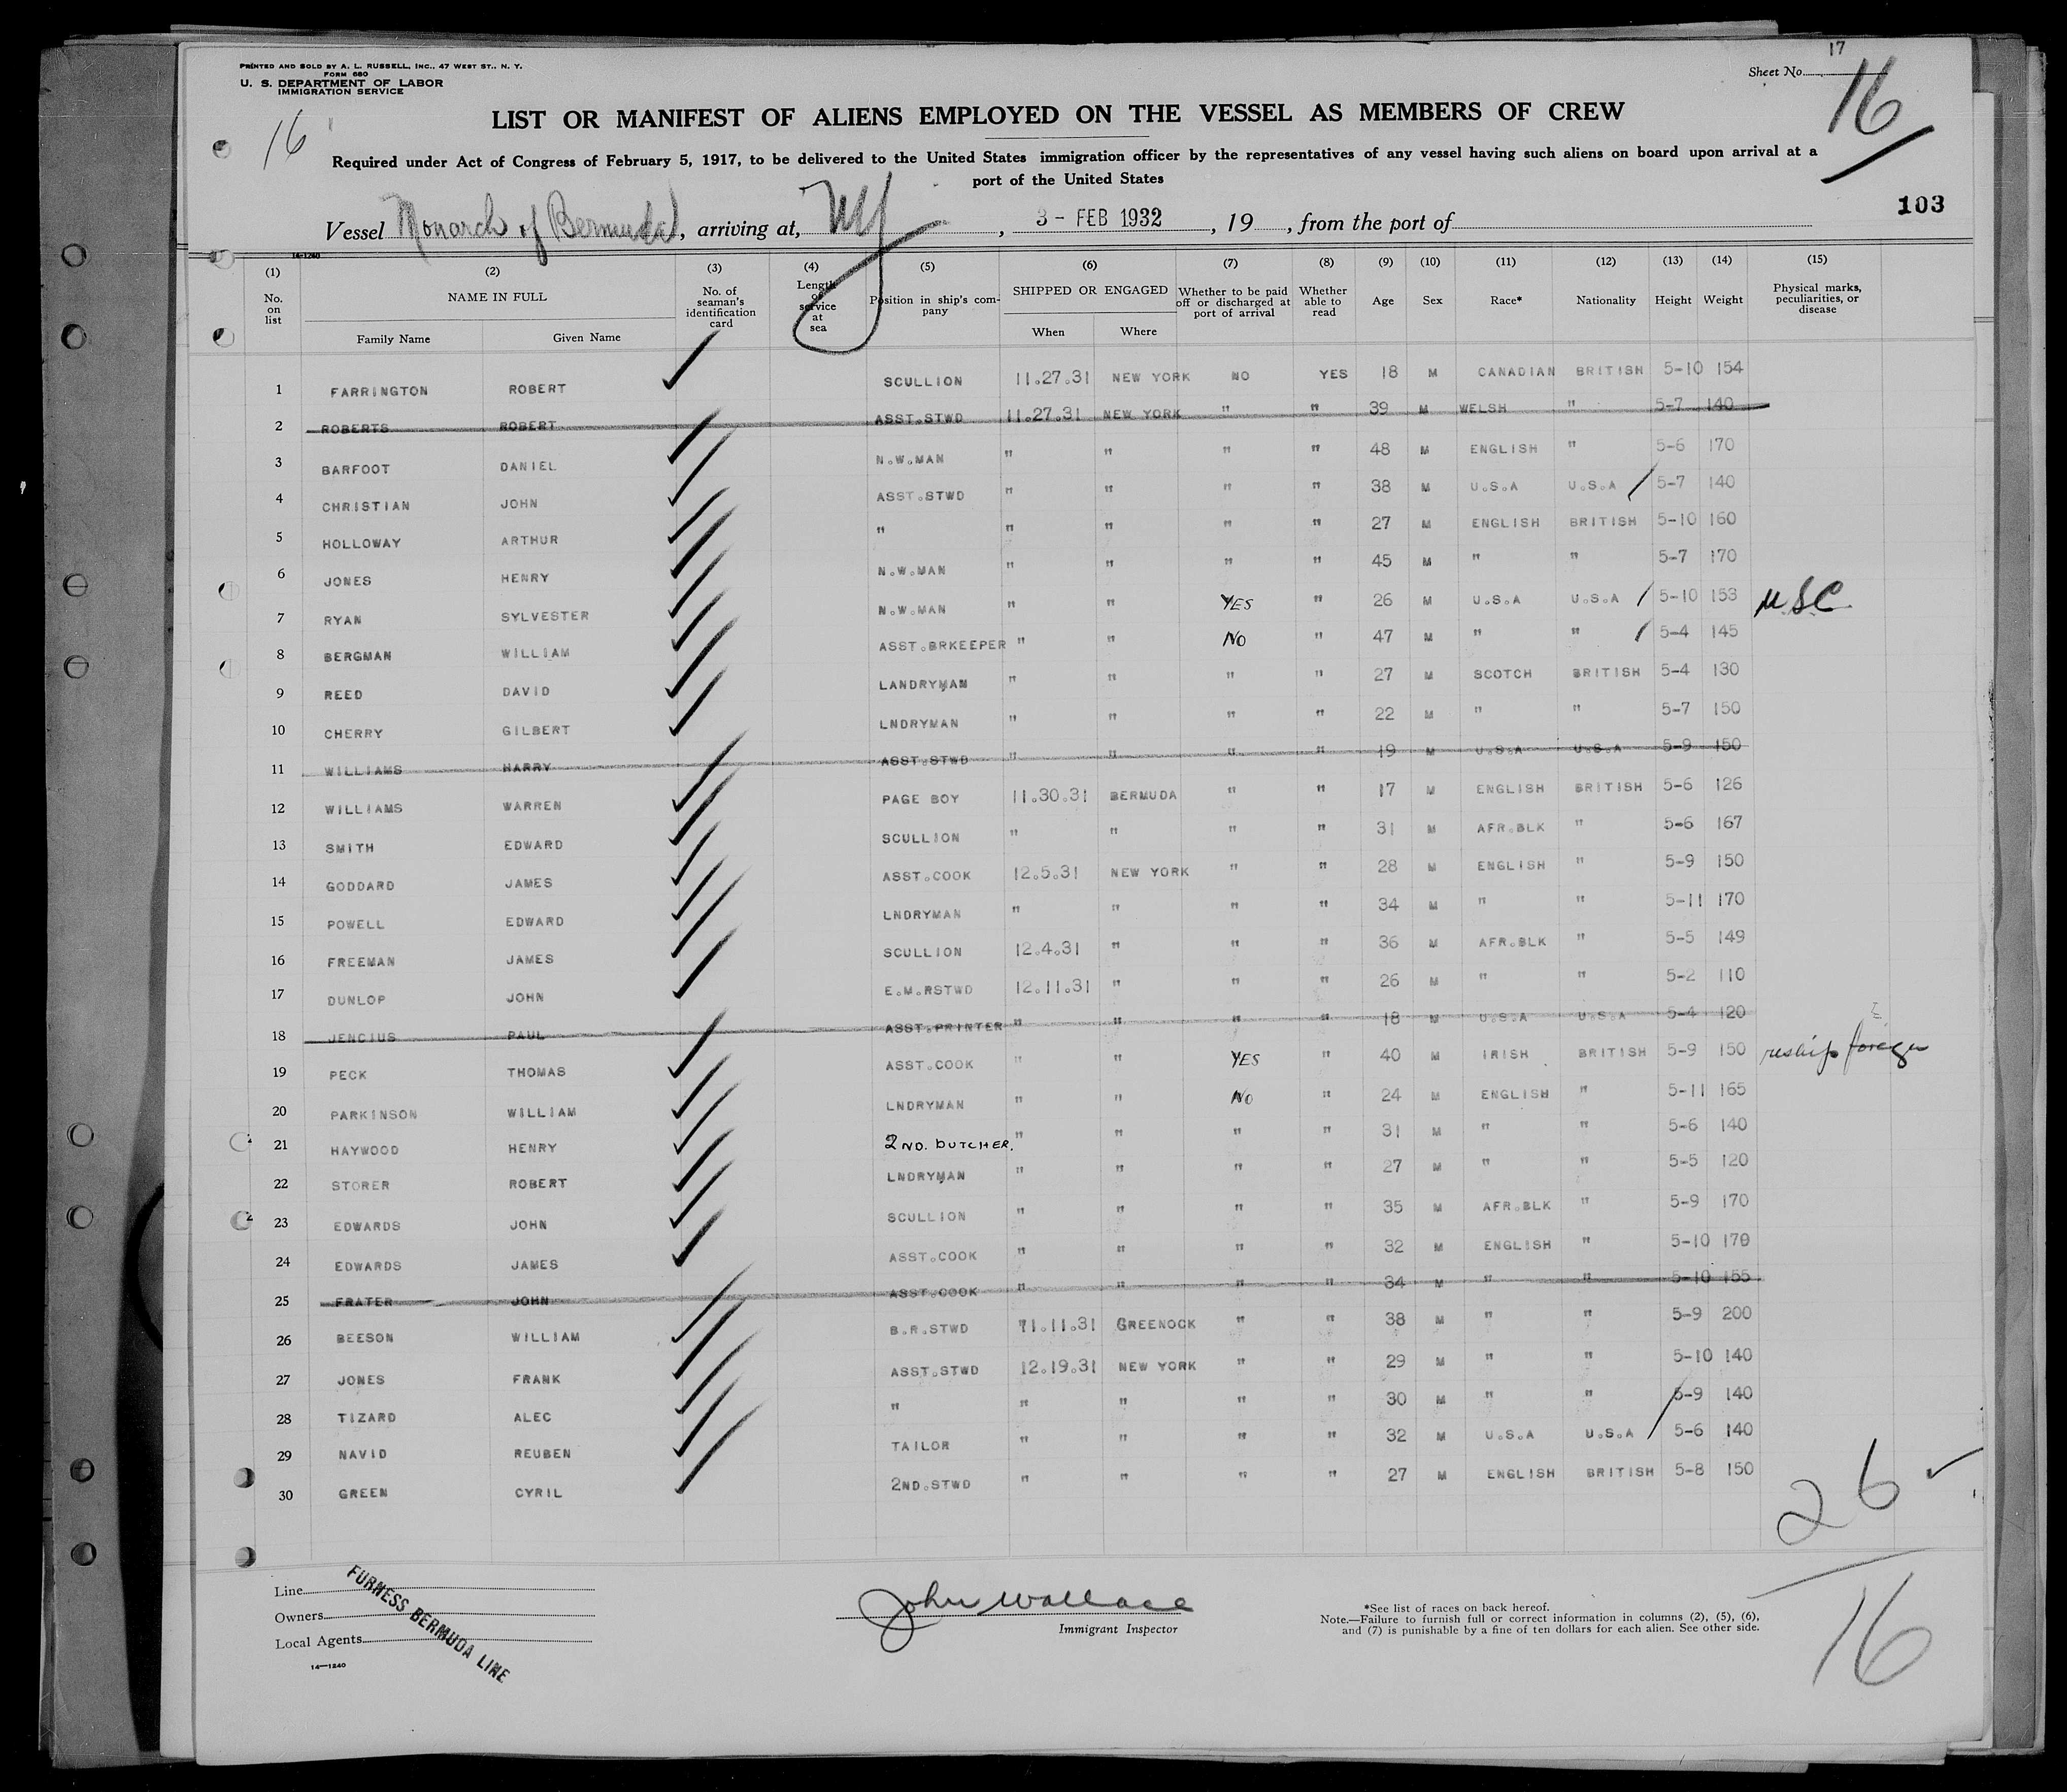 17
PRINTED AND SOLD BY A. L. RUSSELL, INC., 47 WEST ST., N. Y.
FORM 680
U. S. DEPARTMENT OF LABOR
IMMIGRATION SERVICE
Sheet No.
16
16
LIST OR MANIFEST OF ALIENS EMPLOYED ON THE VESSEL AS MEMBERS OF CREW
Required under Act of Congress of February 5, 1917, to be delivered to the United States immigration officer by the representatives of any vessel having such aliens on board upon arrival at a
port of the United States
103
Vessel Monarch of Bermuda, arriving at, NY, 3 - FEB 1932, 19, from the port of
14-1240
(1) (2) (3) (4) (5) (6) (7) (8) (9) (10) (11) (12) (13) (14) (15)
No. on list NAME IN FULL Family Name Given Name No. of seaman's identification card Length of service at sea Position in ship's company SHIPPED OR ENGAGED When Where Whether to be paid off or discharged at port of arrival Whether able to read Age Sex Race* Nationality Height Weight Physical marks, peculiarities, or disease
1 FARRINGTON ROBERT SCULLION 11.27.31 NEW YORK NO YES 18 M CANADIAN BRITISH 5-10 154
2 ROBERTS ROBERT ASST.STWD 11.27.31 NEW YORK " " 39 M WELSH " 5-7 140
3 BARFOOT DANIEL N.W.MAN " " " " 48 M ENGLISH " 5-6 170
4 CHRISTIAN JOHN ASST.STWD " " " " 38 M U.S.A U.S.A / 5-7 140
5 HOLLOWAY ARTHUR " " " " " 27 M ENGLISH BRITISH 5-10 160
6 JONES HENRY N.W.MAN " " " " 45 M " " 5-7 170
7 RYAN SYLVESTER N.W.MAN " " YES " 26 M U.S.A U.S.A / 5-10 153 USC
8 BERGMAN WILLIAM ASST.BRKEEPER " " NO " 47 M " " / 5-4 145
9 REED DAVID LANDRYMAN " " " " 27 M SCOTCH BRITISH 5-4 130
10 CHERRY GILBERT LNDRYMAN " " " " 22 M " " 5-7 150
11 WILLIAMS HARRY ASST.STWD " " " " 19 M U.S.A U.S.A 5-9 150
12 WILLIAMS WARREN PAGE BOY 11.30.31 BERMUDA " " 17 M ENGLISH BRITISH 5-6 126
13 SMITH EDWARD SCULLION " " " " 31 M AFR.BLK " 5-6 167
14 GODDARD JAMES ASST.COOK 12.5.31 NEW YORK " " 28 M ENGLISH " 5-9 150
15 POWELL EDWARD LNDRYMAN " " " " 34 M " " 5-11 170
16 FREEMAN JAMES SCULLION 12.4.31 " " " 36 M AFR.BLK " 5-5 149
17 DUNLOP JOHN E.M.RSTWD 12.11.31 " " " 26 M " " 5-2 110
18 JENCIUS PAUL ASST.PRINTER " " " " 18 M U.S.A U.S.A 5-4 120
19 PECK THOMAS ASST.COOK " " YES " 40 M IRISH BRITISH 5-9 150 reship foreign
20 PARKINSON WILLIAM LNDRYMAN " " NO " 24 M ENGLISH " 5-11 165
21 HAYWOOD HENRY 2ND. BUTCHER. " " " " 31 M " " 5-6 140
22 STORER ROBERT LNDRYMAN " " " " 27 M " " 5-5 120
23 EDWARDS JOHN SCULLION " " " " 35 M AFR.BLK " 5-9 170
24 EDWARDS JAMES ASST.COOK " " " " 32 M ENGLISH " 5-10 170
25 FRATER JOHN ASST.COOK " " " " 34 M " " 5-10 155
26 BEESON WILLIAM B.R.STWD 11.11.31 GREENOCK " " 38 M " " 5-9 200
27 JONES FRANK ASST.STWD 12.19.31 NEW YORK " " 29 M " " 5-10 140
28 TIZARD ALEC " " " " " 30 M " " 5-9 140
29 NAVID REUBEN TAILOR " " " " 32 M U.S.A U.S.A / 5-6 140
30 GREEN CYRIL 2ND.STWD " " " " 27 M ENGLISH BRITISH 5-8 150
26
Line
Owners
Local Agents
FURNESS BERMUDA LINE
14-1240
John Wallace
Immigrant Inspector
*See list of races on back hereof.
Note.—Failure to furnish full or correct information in columns (2), (5), (6),
and (7) is punishable by a fine of ten dollars for each alien. See other side.
16